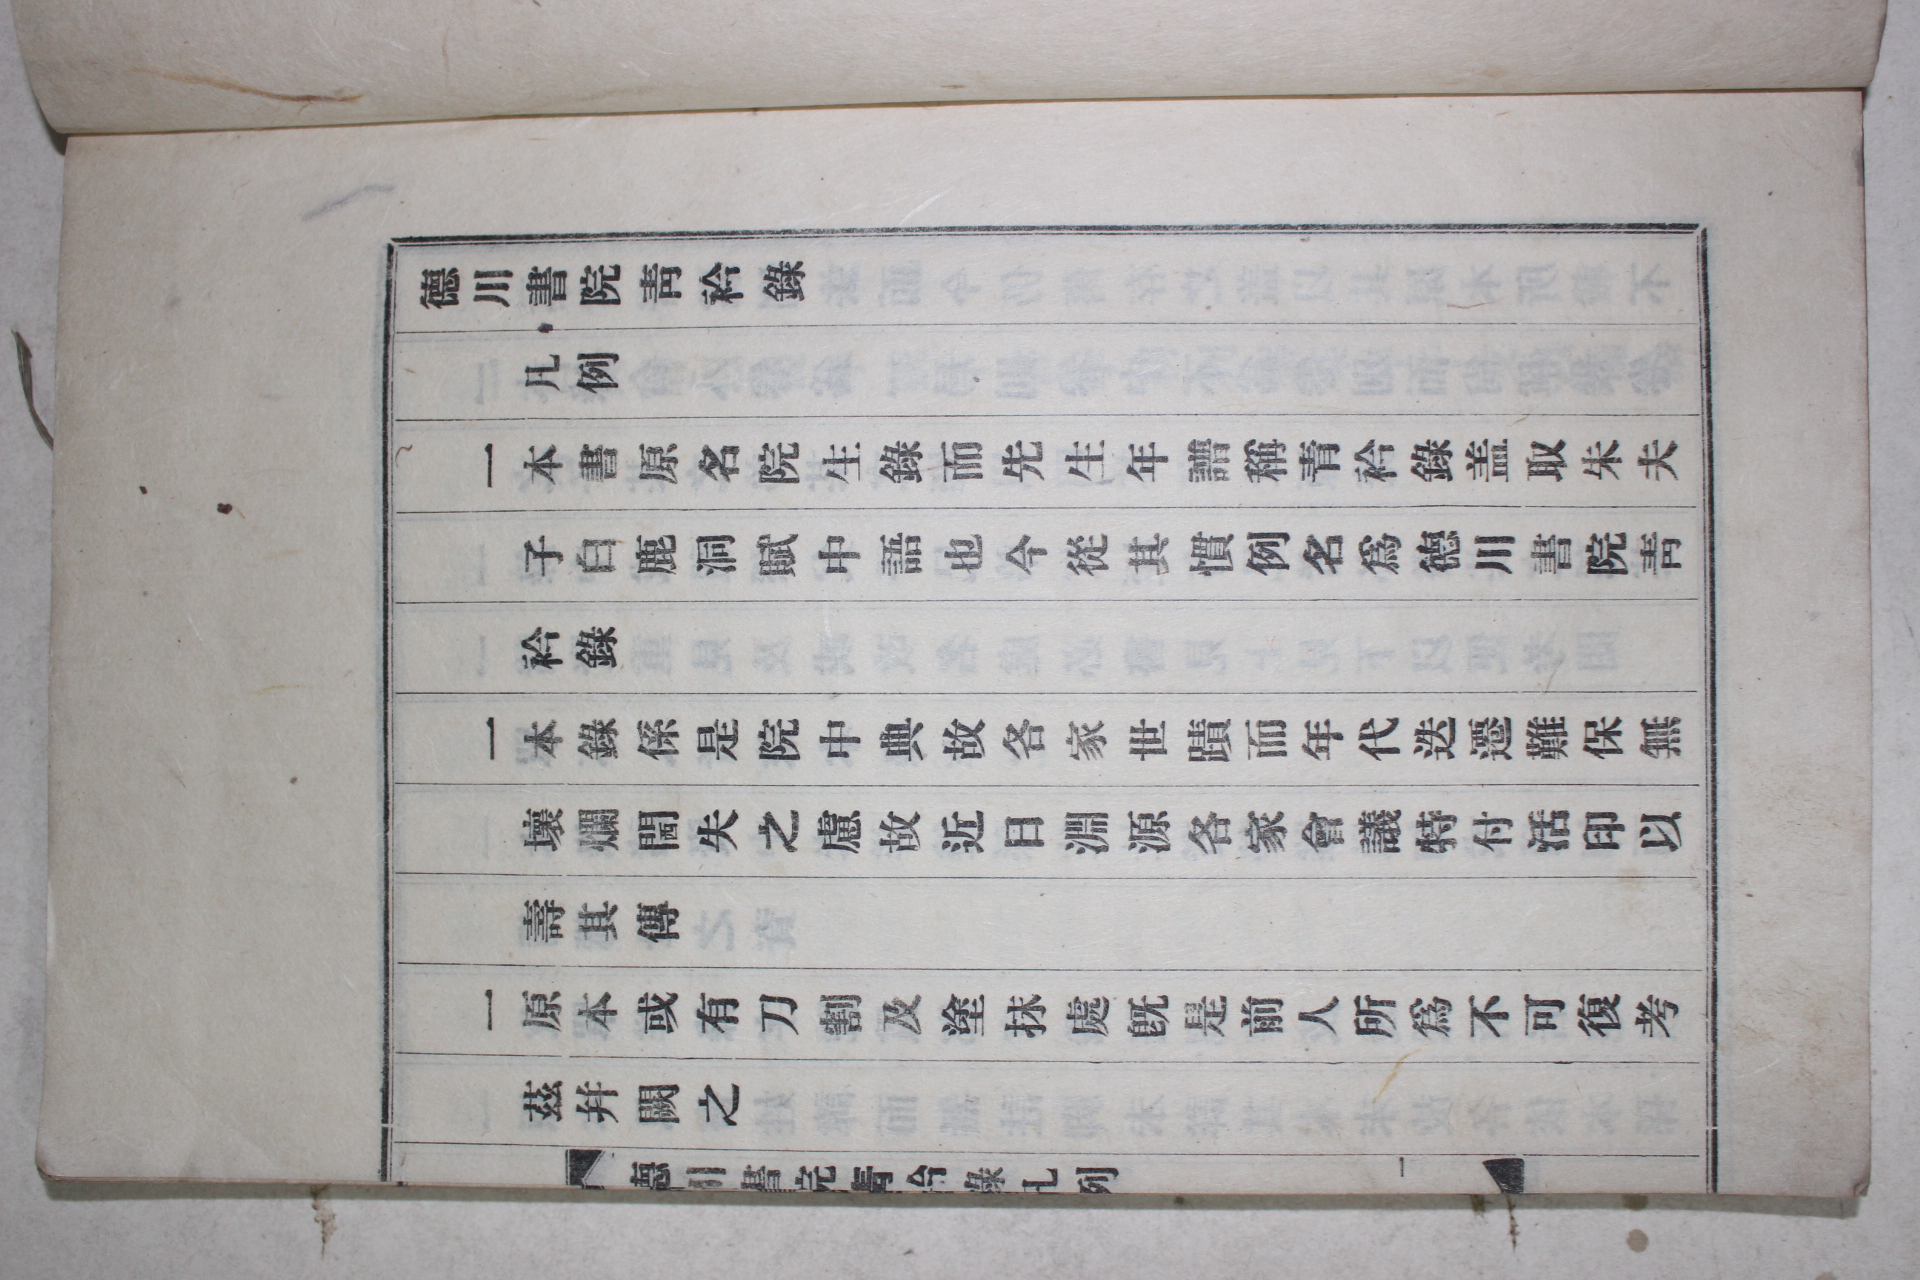 德川書院靑衿錄
凡例
一本書原名院生錄而先生年譜稱青衿錄盖取朱夫
子白鹿洞賦中語也今從其慣例名爲德川書院靑
衿錄
一本錄係是院中典故各家世蹟而年代迭遷難保無
壞爛閪失之慮故近日淵源各家會議特付活印以
壽其傳
一原本或有刀割及塗抹處旣是前人所爲不可復考
茲幷闕之
德川書院靑衿錄凡例 一